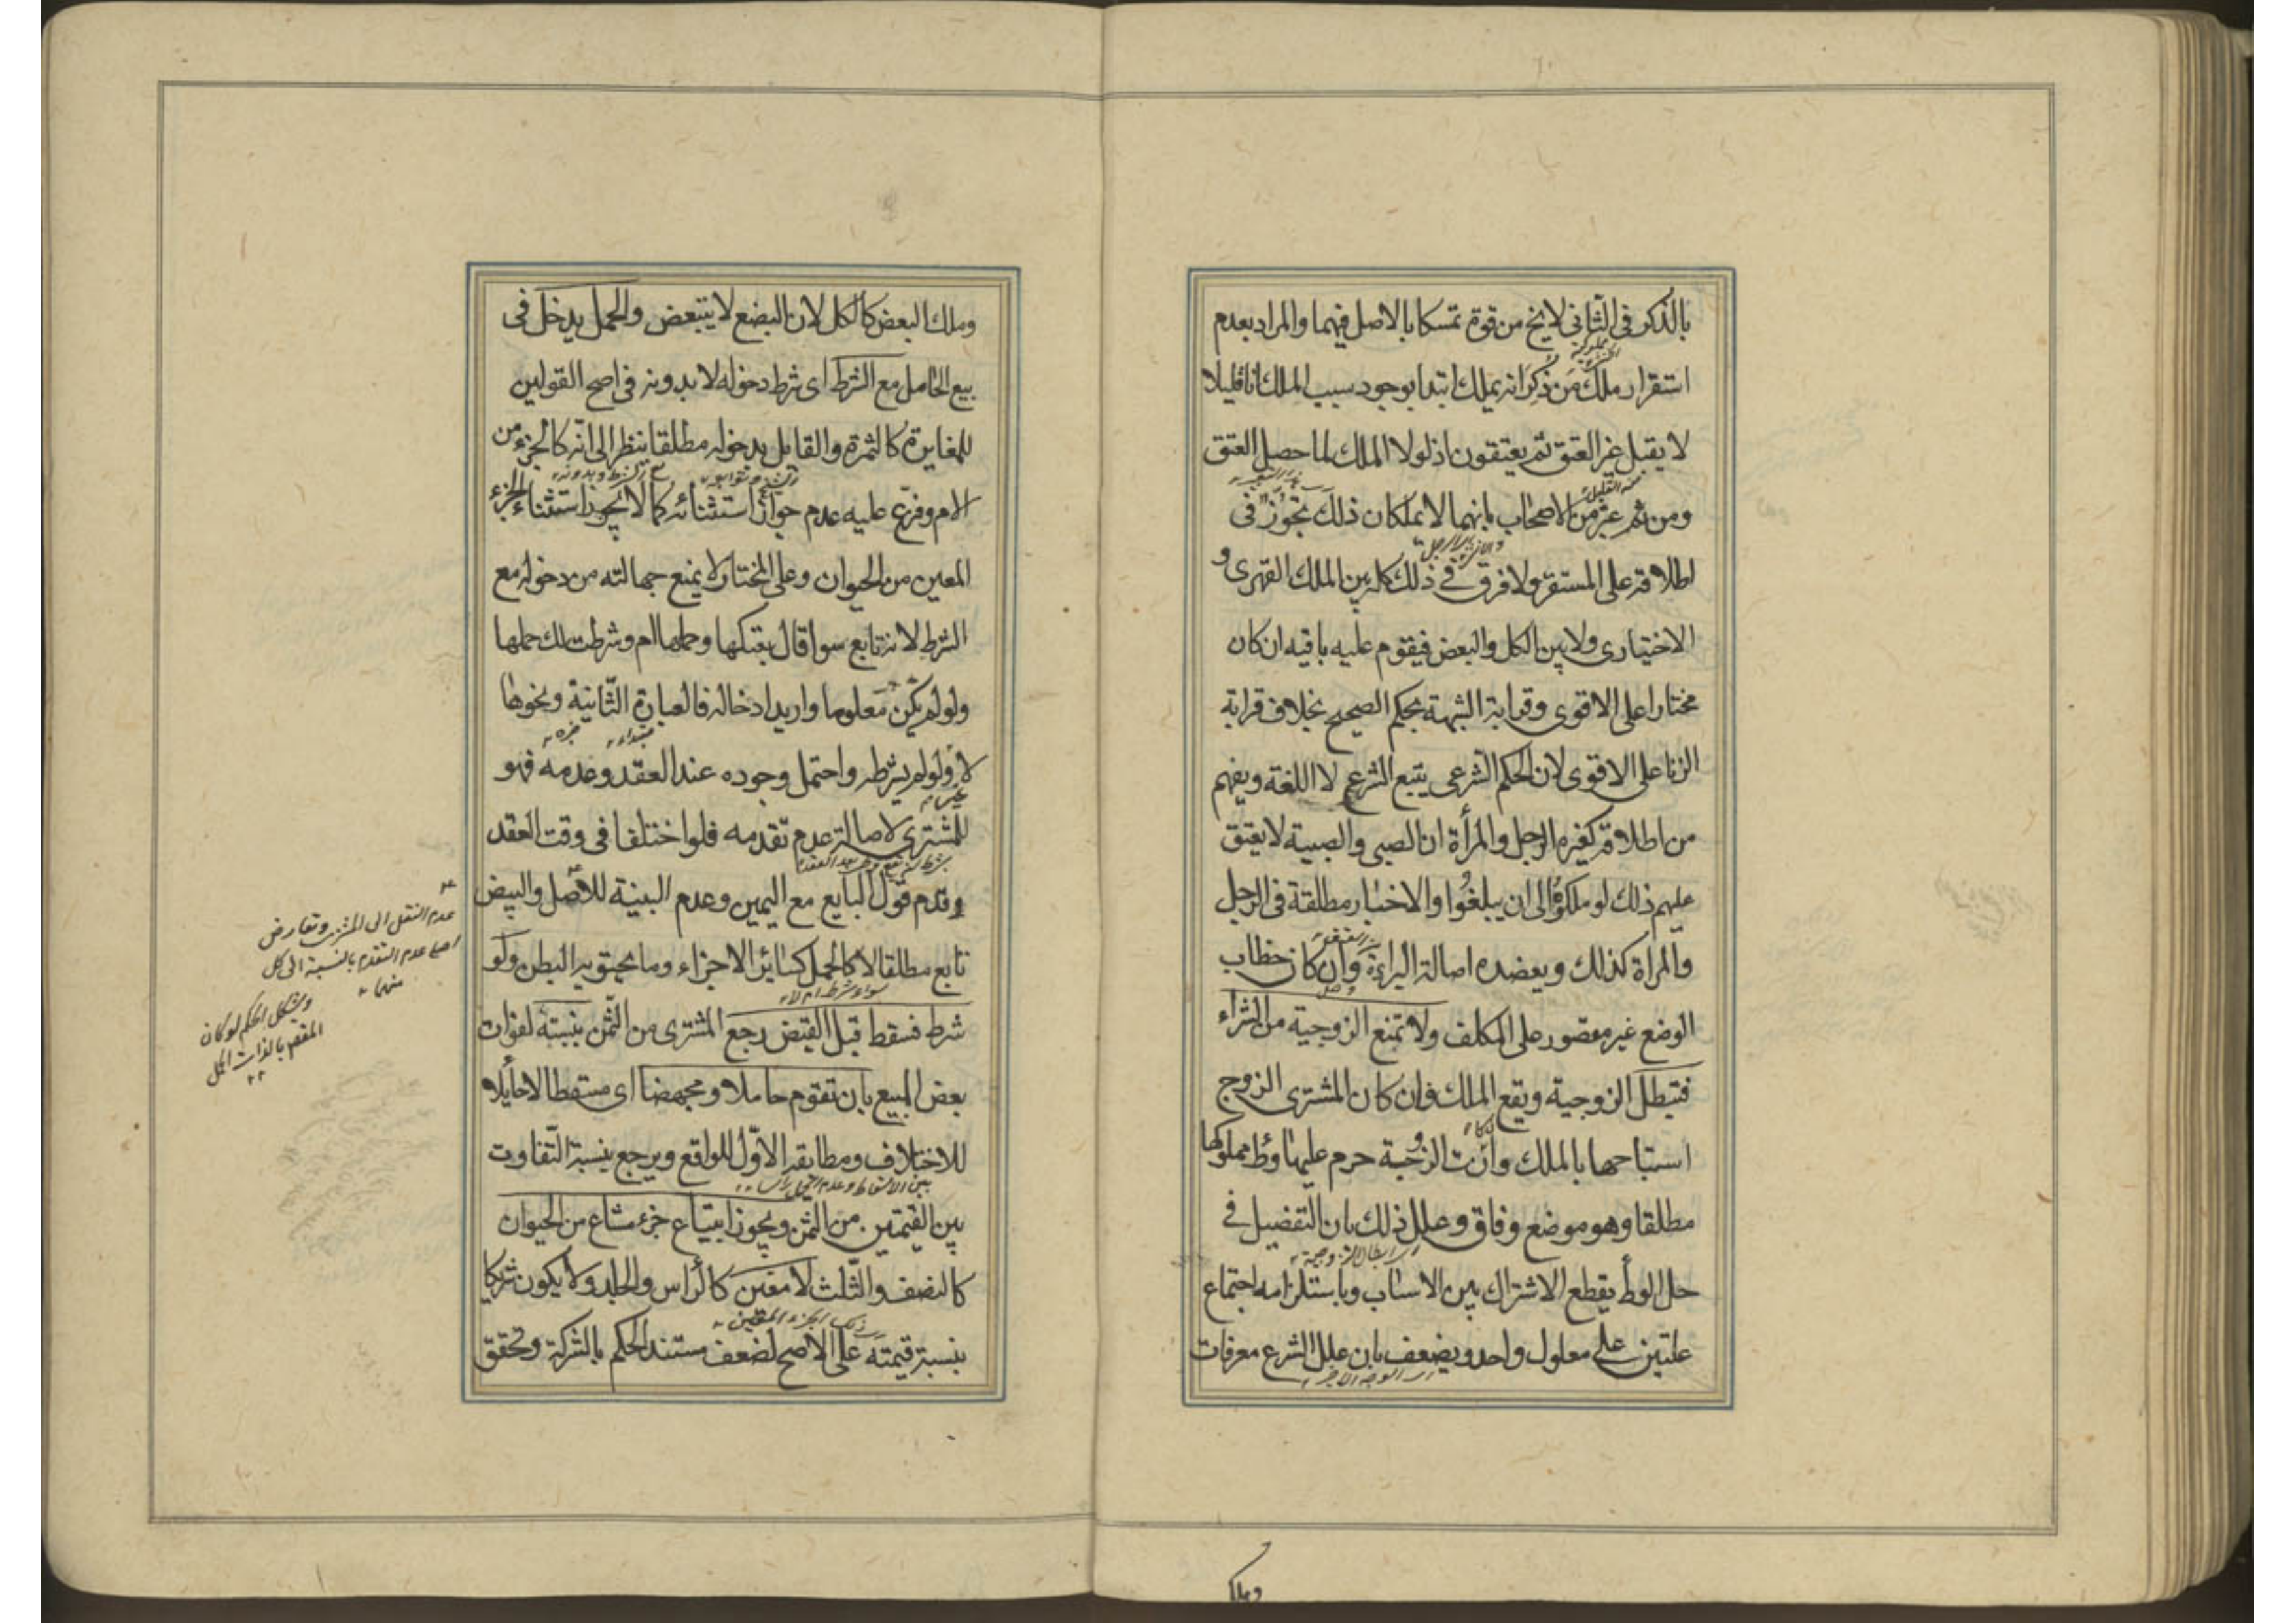 بالذكر فى الثانى لا يخ من قوة تمسكا بالاصل فيهما والمراد بعدم
استقرار ملك من ذكر انه يملك ابتدا بوجود سبب الملك انا قليلا
لا يقبل غير العتق ثم يعتقون اذ لولا الملك لما حصل العتق
ومن ثم عبر من الاصحاب بانهما لا يملكان ذلك تجوز فى
اطلاقه على المستقر ولا فرق فى ذلك كله بين الملك القهرى و
الاختيارى ولا بين الكل والبعض فيقوم عليه باقيه ان كان
مختارا على الاقوى وقرابة الشبهة بحكم الصحيح بخلاف قرابة
الزنا على الاقوى لان الحكم الشرعى يتبع الشرع لا اللغة ويفهم
من اطلاقه كغيره الرجل والمرأة ان الصبى والصبية لا يعتق
عليهم ذلك لو ملكوه الى ان يبلغوا والاخبار مطلقة فى الرجل
والمراة كذلك ويعضده اصالة البراءة وان كان خطاب
الوضع غير مقصور على المكلف ولا تمنع الزوجية من الشراء
فتبطل الزوجية ويقع الملك فان كان المشترى الزوج
استباحها بالملك وان كانت الزوجة حرم عليها وطؤ مملوكها
مطلقا وهو موضع وفاق وعلل ذلك بان التفضيل فى
اى ابطال الزوجية
حل الوطأ يقطع الاشتراك بين الاسباب وباستلزامه اجتماع
علتين على معلول واحد ويضعف بان علل الشرع معرفات
اى الوجه الاخير
وملك
وملك البعض كالكل لان البضع لا يتبعض والحمل يدخل فى
بيع الحامل مع الشرط اى شرط دخوله لا بدونه فى اصح القولين
للمغايرة كالثمرة والقايل بدخوله مطلقا ينظر الى انه كالجزء من
الام وفرع عليه عدم جواز استثنائه كما لا يجوز استثناء الجزء
المعين من الحيوان وعلى المختار لا يمنع جهالته من دخوله مع
الشرط لانه تابع سوا قال بعتكها وحملها ام وشرطت لك حملها
ولو لم يكن معلوما واريد ادخاله فالعبارة الثانية ونحوها
مبتداء خبره
لا ولو لم يشرطه واحتمل وجوده عند العقد وعدمه فهو
للمشترى لاصالة عدم تقدمه فلو اختلفا فى وقت العقد
قدم قول البايع مع اليمين وعدم البينة للاصل والبيض
تابع مطلقا لا كالحمل كسائر الاجزاء وما يحتويه البطن ولو
سواء شرط ام لا
شرط فسقط قبل القبض رجع المشترى من الثمن بنسبته لفوات
بعض المبيع بان تقوم حاملا ومجهضا اى مسقطا لا حائلا
للاختلاف ومطابقة الاول للواقع ويرجع بنسبة التفاوت
بين القيمتين من الثمن ويجوز ابتياع جزء مشاع من الحيوان
كالنصف والثلث لا معين كالراس والجلد ولا يكون شريكا
بنسبة قيمته على الاصح لضعف مستند الحكم بالشركة وتحقق
عدم النقل الى المشترى وتعارض
اصل عدم التقدم بالنسبة الى كل
منهما
ويشكل الحكم لو كان
المقصود بالذات الحمل